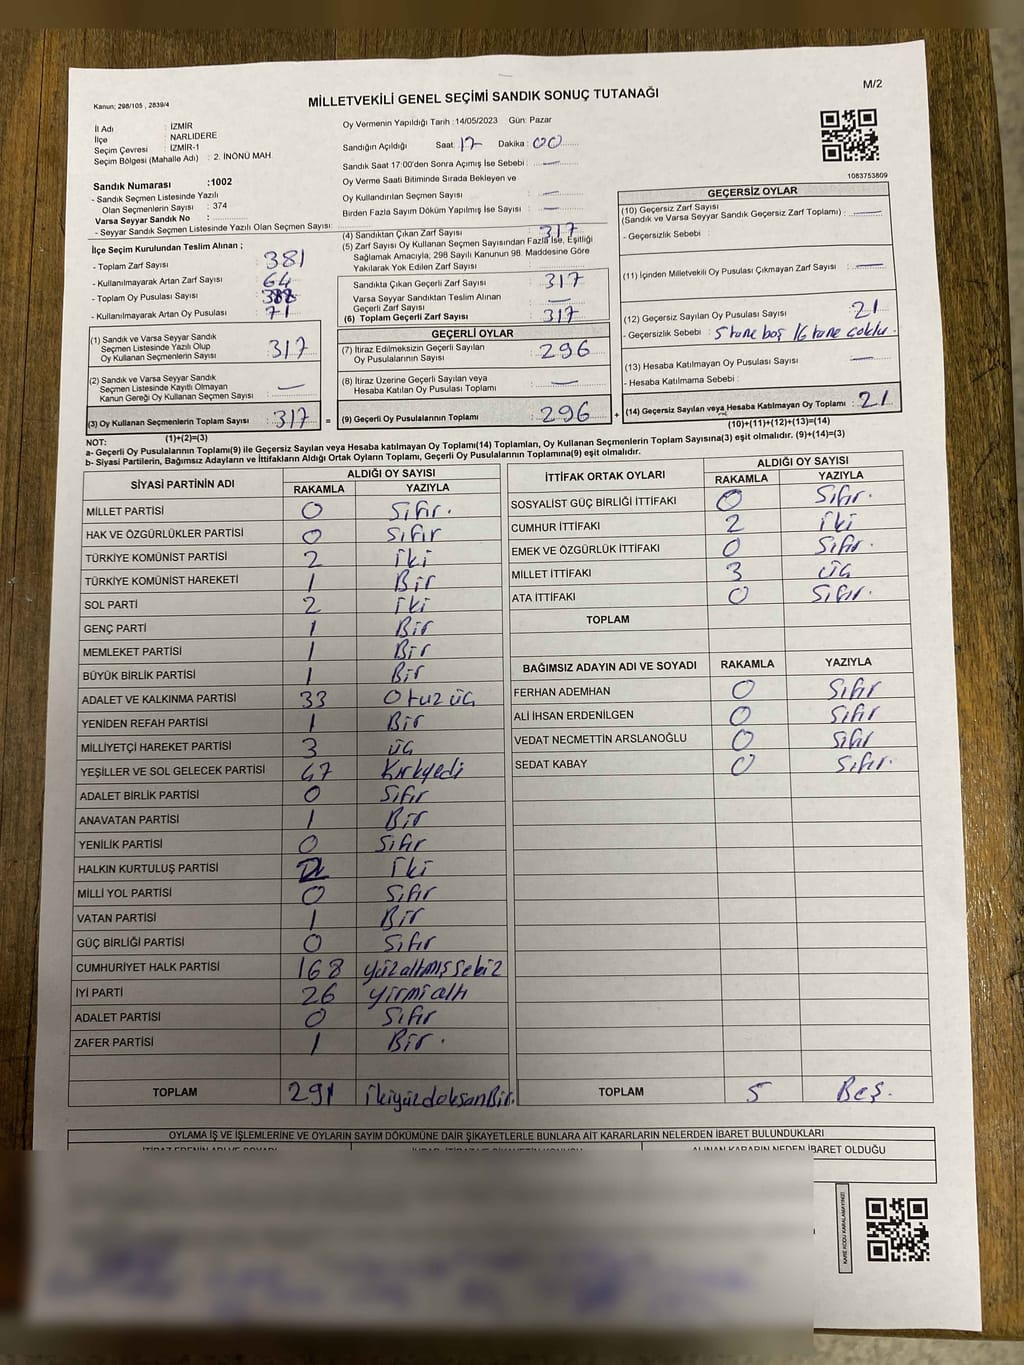 M/2
Kanun; 298/105 , 2839/4
MİLLETVEKİLİ GENEL SEÇİMİ SANDIK SONUÇ TUTANAĞI
İl Adı : İZMİR
İlçe : NARLIDERE
Seçim Çevresi : İZMİR-1
Seçim Bölgesi (Mahalle Adı) : 2. İNÖNÜ MAH
Sandık Numarası :1002
- Sandık Seçmen Listesinde Yazılı
Olan Seçmenlerin Sayısı : 374
Varsa Seyyar Sandık No :
- Seyyar Sandık Seçmen Listesinde Yazılı Olan Seçmen Sayısı:
Oy Vermenin Yapıldığı Tarih :14/05/2023 Gün: Pazar
Sandığın Açıldığı Saat: 17 Dakika : 00
Sandık Saat 17:00'den Sonra Açımış İse Sebebi : —
Oy Verme Saati Bitiminde Sırada Bekleyen ve
Oy Kullandırılan Seçmen Sayısı : —
Birden Fazla Sayım Döküm Yapılmış İse Sayısı : —
1083753809
İlçe Seçim Kurulundan Teslim Alınan ;
- Toplam Zarf Sayısı : 381
- Kullanılmayarak Artan Zarf Sayısı : 64
- Toplam Oy Pusulası Sayısı : 388
- Kullanılmayarak Artan Oy Pusulası : 71
(1) Sandık ve Varsa Seyyar Sandık
Seçmen Listesinde Yazılı Olup
Oy Kullanan Seçmenlerin Sayısı : 317
(2) Sandık ve Varsa Seyyar Sandık
Seçmen Listesinde Kayıtlı Olmayan
Kanun Gereği Oy Kullanan Seçmen Sayısı : —
(3) Oy Kullanan Seçmenlerin Toplam Sayısı : 317 =
(1)+(2)=(3)
(4) Sandıktan Çıkan Zarf Sayısı : 317
(5) Zarf Sayısı Oy Kullanan Seçmen Sayısından Fazla İse, Eşitliği
Sağlamak Amacıyla, 298 Sayılı Kanunun 98. Maddesine Göre
Yakılarak Yok Edilen Zarf Sayısı :
Sandıkta Çıkan Geçerli Zarf Sayısı : 317
Varsa Seyyar Sandıktan Teslim Alınan
Geçerli Zarf Sayısı : —
(6) Toplam Geçerli Zarf Sayısı : 317
GEÇERLİ OYLAR
(7) İtiraz Edilmeksizin Geçerli Sayılan
Oy Pusulalarının Sayısı : 296
(8) İtiraz Üzerine Geçerli Sayılan veya
Hesaba Katılan Oy Pusulası Toplamı : —
(9) Geçerli Oy Pusulalarının Toplamı : 296 +
GEÇERSİZ OYLAR
(10) Geçersiz Zarf Sayısı
(Sandık ve Varsa Seyyar Sandık Geçersiz Zarf Toplamı) : —
- Geçersizlik Sebebi :
(11) İçinden Milletvekili Oy Pusulası Çıkmayan Zarf Sayısı : —
(12) Geçersiz Sayılan Oy Pusulası Sayısı : 21
- Geçersizlik Sebebi : 5 tane boş 16 tane çoklu.
(13) Hesaba Katılmayan Oy Pusulası Sayısı : —
- Hesaba Katılmama Sebebi :
(14) Geçersiz Sayılan veya Hesaba Katılmayan Oy Toplamı : 21
(10)+(11)+(12)+(13)=(14)
NOT:
a- Geçerli Oy Pusulalarının Toplamı(9) ile Geçersiz Sayılan veya Hesaba katılmayan Oy Toplamı(14) Toplamları, Oy Kullanan Seçmenlerin Toplam Sayısına(3) eşit olmalıdır. (9)+(14)=(3)
b- Siyasi Partilerin, Bağımsız Adayların ve İttifakların Aldığı Ortak Oyların Toplamı, Geçerli Oy Pusulalarının Toplamına(9) eşit olmalıdır.
SİYASİ PARTİNİN ADI ALDIĞI OY SAYISI
RAKAMLA YAZIYLA
MİLLET PARTİSİ 0 Sıfır.
HAK VE ÖZGÜRLÜKLER PARTİSİ 0 Sıfır
TÜRKİYE KOMÜNİST PARTİSİ 2 iki
TÜRKİYE KOMÜNİST HAREKETİ 1 Bir
SOL PARTİ 2 iki
GENÇ PARTİ 1 Bir
MEMLEKET PARTİSİ 1 Bir
BÜYÜK BİRLİK PARTİSİ 1 Bir
ADALET VE KALKINMA PARTİSİ 33 Otuz üç
YENİDEN REFAH PARTİSİ 1 Bir
MİLLİYETÇİ HAREKET PARTİSİ 3 üç
YEŞİLLER VE SOL GELECEK PARTİSİ 47 Kırkyedi
ADALET BİRLİK PARTİSİ 0 Sıfır
ANAVATAN PARTİSİ 1 Bir
YENİLİK PARTİSİ 0 Sıfır
HALKIN KURTULUŞ PARTİSİ 2 İki
MİLLİ YOL PARTİSİ 0 Sıfır
VATAN PARTİSİ 1 Bir
GÜÇ BİRLİĞİ PARTİSİ 0 Sıfır
CUMHURİYET HALK PARTİSİ 168 yüzaltmışsekiz
İYİ PARTİ 26 yirmialtı
ADALET PARTİSİ 0 Sıfır
ZAFER PARTİSİ 1 Bir.
TOPLAM 291 ikiyüzdoksanBir.
İTTİFAK ORTAK OYLARI ALDIĞI OY SAYISI
RAKAMLA YAZIYLA
SOSYALİST GÜÇ BİRLİĞİ İTTİFAKI 0 Sıfır.
CUMHUR İTTİFAKI 2 iki
EMEK VE ÖZGÜRLÜK İTTİFAKI 0 Sıfır.
MİLLET İTTİFAKI 3 üç
ATA İTTİFAKI 0 Sıfır.
TOPLAM
BAĞIMSIZ ADAYIN ADI VE SOYADI RAKAMLA YAZIYLA
FERHAN ADEMHAN 0 Sıfır
ALİ İHSAN ERDENİLGEN 0 Sıfır
VEDAT NECMETTİN ARSLANOĞLU 0 Sıfır
SEDAT KABAY 0 Sıfır.
TOPLAM 5 Beş.
OYLAMA İŞ VE İŞLEMLERİNE VE OYLARIN SAYIM DÖKÜMÜNE DAİR ŞİKAYETLERLE BUNLARA AİT KARARLARIN NELERDEN İBARET BULUNDUKLARI
ALINAN KARARIN NEDEN İBARET OLDUĞU
KARE KODU KARALAMAYINIZ!